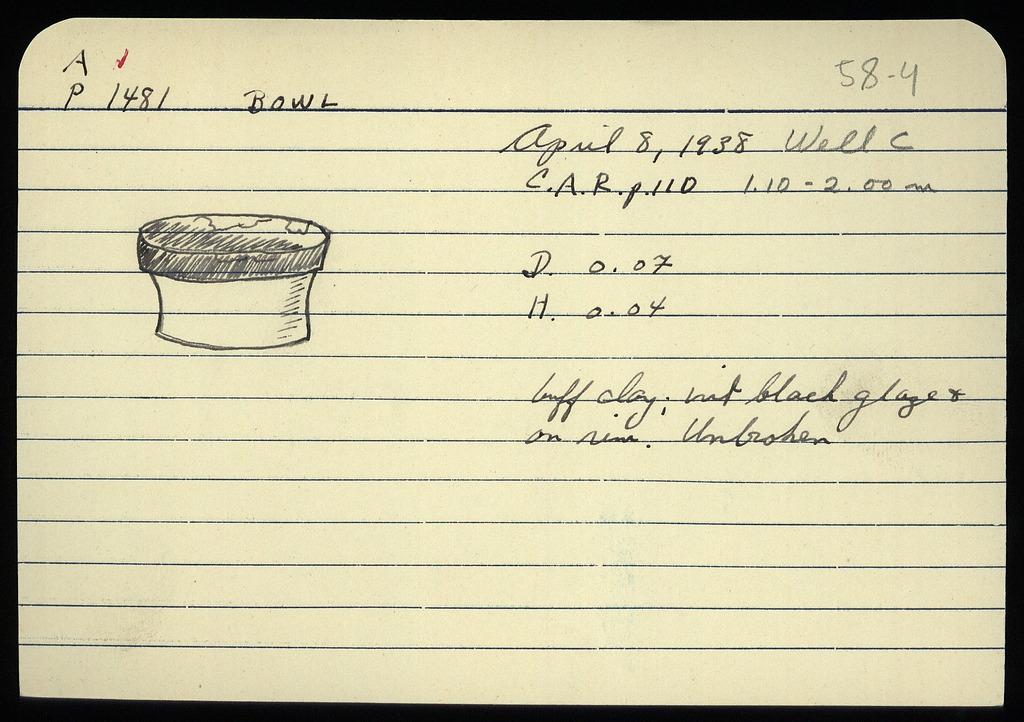 A ✓
58-4
P 1481 BOWL
April 8, 1938 Well C
C.A.R. p. 110 1.10 - 2.00 m
D. 0.07
H. 0.04
buff clay; int black glaze &
on rim. Unbroken